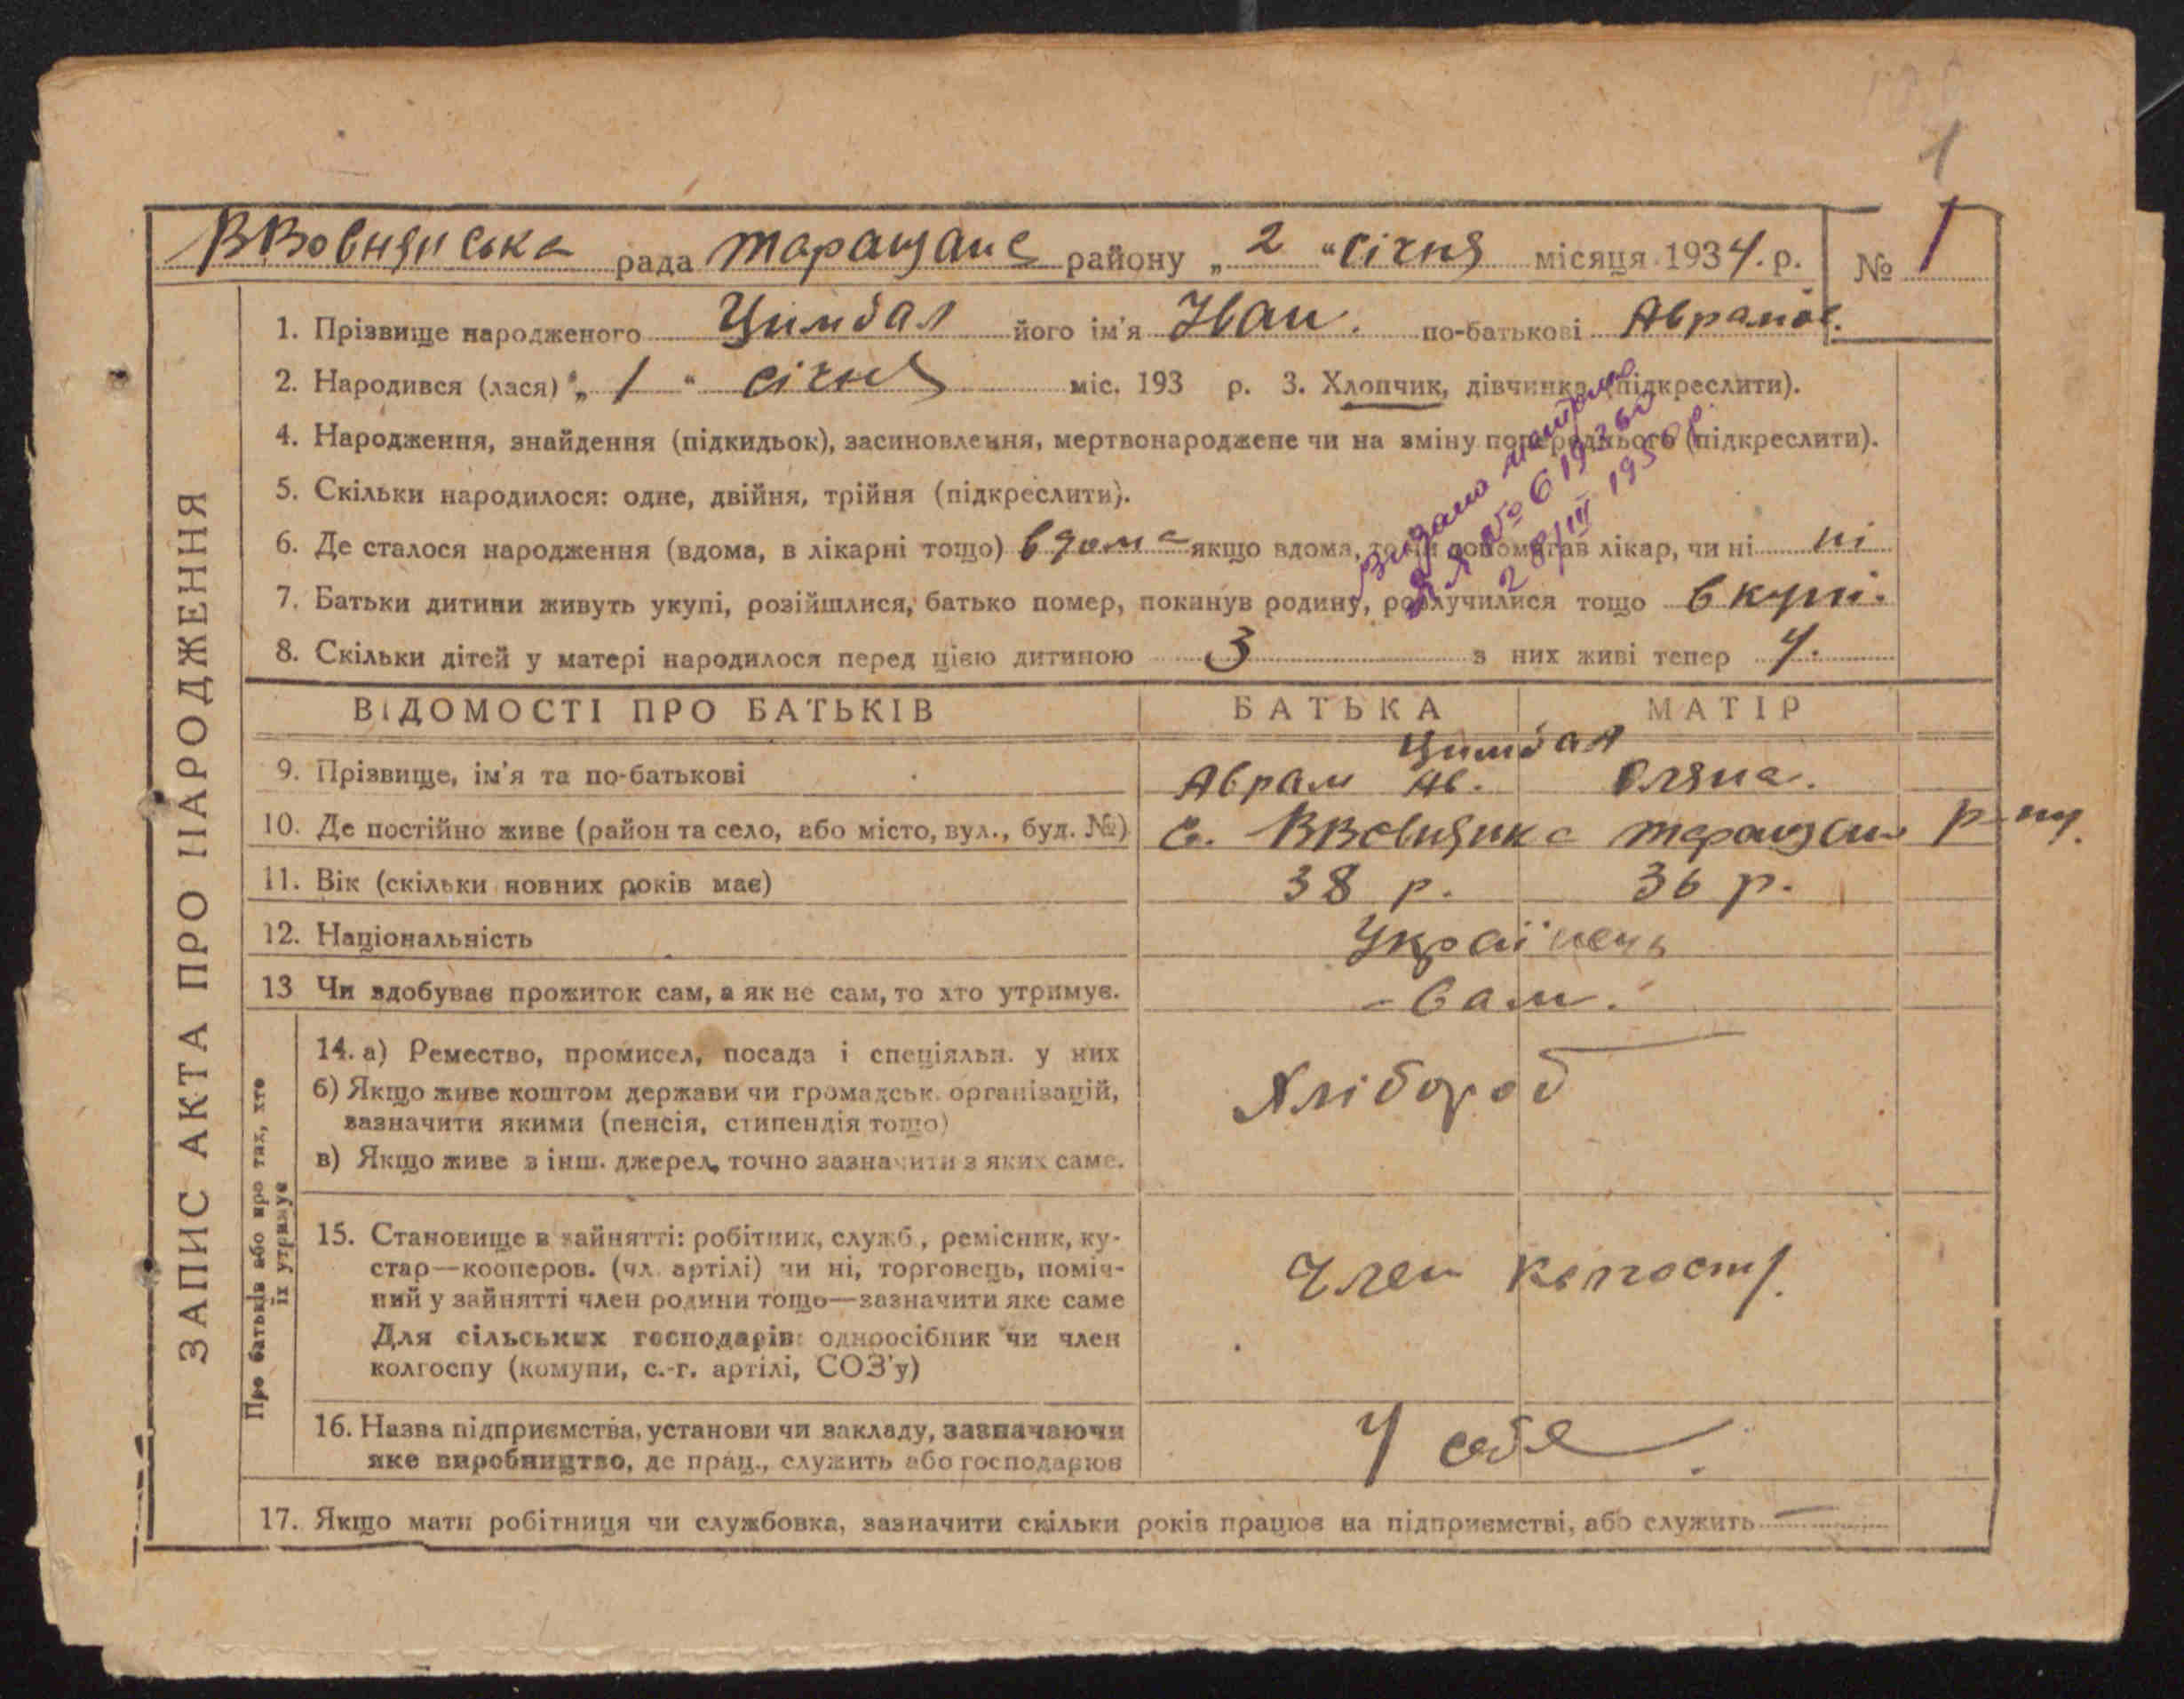 1
ВВовнянська рада Таращанс району „ 2 " січня місяця 1934. р. № 1
ЗАПИС АКТА ПРО НАРОДЖЕННЯ
1. Прізвище народженого Цимбал його ім'я Іван. по-батькові Абрамов.
2. Народився (лася) „ 1 " січня міс. 193 р. 3. Хлопчик, дівчинка (підкреслити).
4. Народження, знайдення (підкидьок), засиновлення, мертвонароджене чи на зміну попереднього (підкреслити).
5. Скільки народилося: одне, двійня, трійня (підкреслити).
6. Де сталося народження (вдома, в лікарні тощо) вдома якщо вдома, то чи допомагав лікар, чи ні ні
7. Батьки дитини живуть укупі, розійшлися, батько помер, покинув родину, розлучилися тощо вкупі.
8. Скільки дітей у матері народилося перед цією дитиною 3 з них живі тепер 4.
Видано
28/III 1950 р.
ВІДОМОСТІ ПРО БАТЬКІВ БАТЬКА МАТІР
Цимбал
9. Прізвище, ім'я та по-батькові Абрам Ав. Оляна.
10. Де постійно живе (район та село, або місто, вул., буд. №) с. ВВовнянка Таращан р-ну.
11. Вік (скільки повних років має) 38 р. 36 р.
12. Національність Українець
13 Чи здобуває прожиток сам, а як не сам, то хто утримує. - Сам.
Про батьків або про тих, хто
їх утримує
14. а) Ремество, промисел, посада і спеціяльн. у них Хлібороб
б) Якщо живе коштом держави чи громадськ. організацій,
зазначити якими (пенсія, стипендія тощо)
в) Якщо живе з інш. джерел, точно зазначити з яких саме.
15. Становище в зайнятті: робітник, служб., ремісник, ку-
стар—кооперов. (чл. артілі) чи ні, торговець, поміч-
ний у зайнятті член родини тощо—зазначити яке саме
Для сільських господарів: одноосібник чи член
колгоспу (комуни, с.-г. артілі, СОЗ'у)
Член
16. Назва підприємства, установи чи закладу, зазначаючи
яке виробництво, де прац., служить або господарює
У себе
17. Якщо мати робітниця чи службовка, зазначити скільки років працює на підприємстві, або служить —